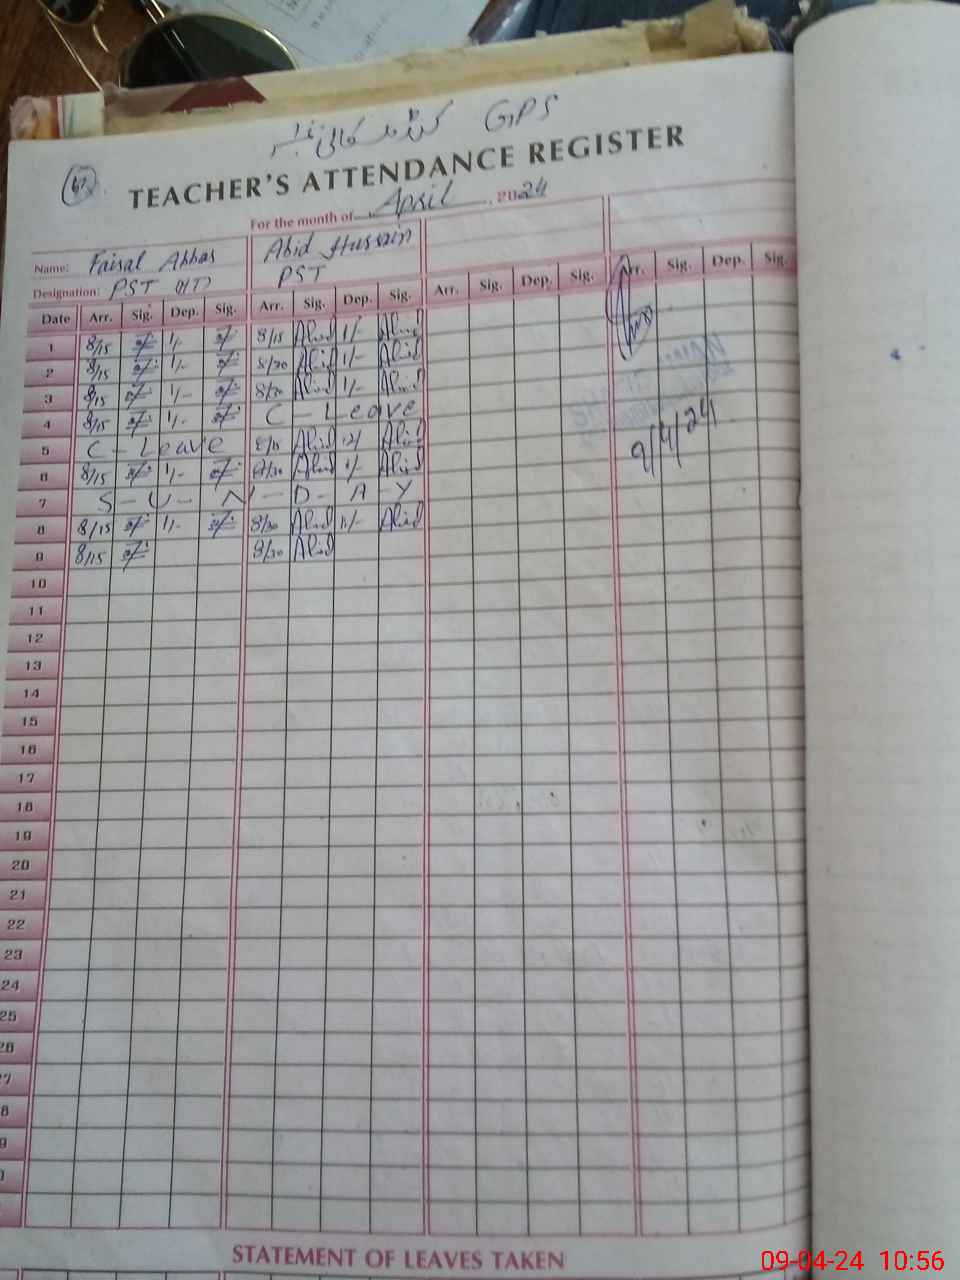 GPS
67
TEACHER'S ATTENDANCE REGISTER
For the month of April, 2024
Name: Faisal Abbas Abid Hussain
Designation: PST PST
Date Arr. Sig. Dep. Sig. Arr. Sig. Dep. Sig. Arr. Sig. Dep. Sig. Arr. Sig. Dep. Sig.
1 8/15 1/- 8/15 Abid 1/- Abid
2 8/15 1/- 8/30 Abid 1/- Abid
3 8/15 1/- 8/30 Abid 1/- Abid
4 8/15 1/- C - Leave
5 C - Leave Abid 12/ Abid
6 8/15 1/- 8/30 Abid 1/- Abid
7 S - U - N - D - A - Y
8 8/15 1/- 8/30 Abid 1/- Abid
9 8/15 8/30 Abid
9/4/24
10
11
12
13
14
15
16
17
18
19
20
21
22
23
24
25
26
STATEMENT OF LEAVES TAKEN
09-04-24 10:56